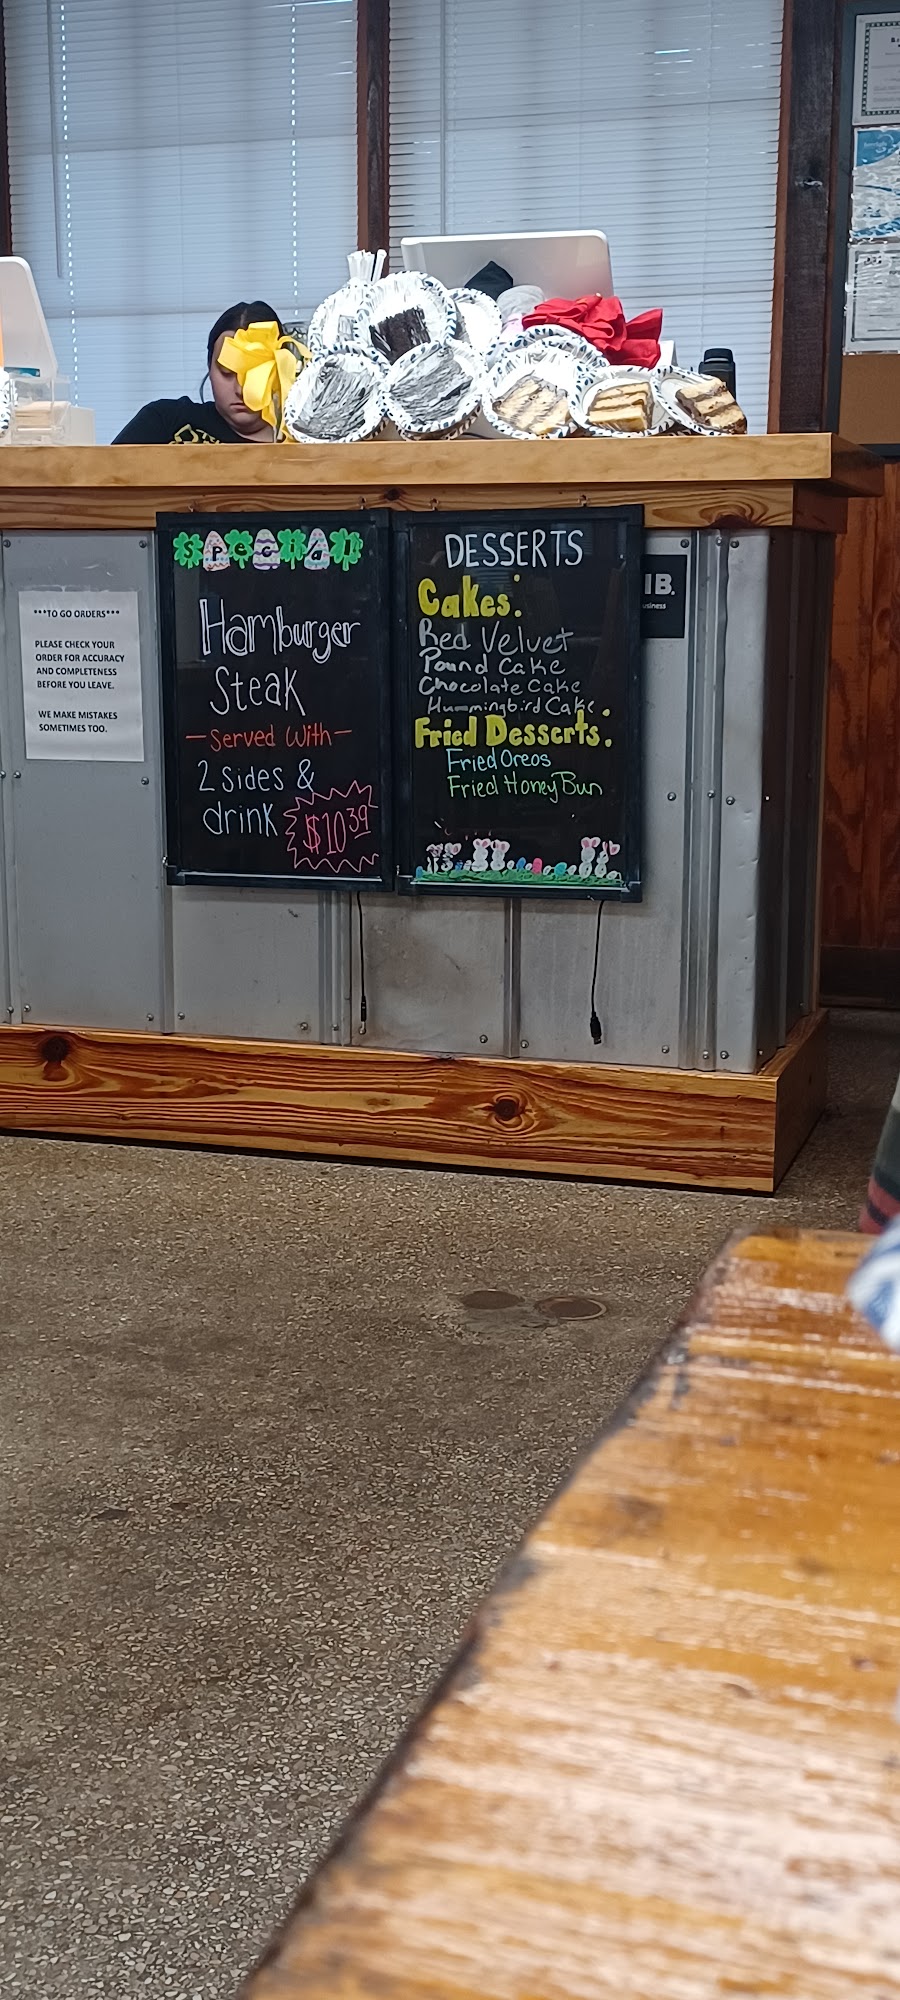 ***TO GO ORDERS***
PLEASE CHECK YOUR
ORDER FOR ACCURACY
AND COMPLETENESS
BEFORE YOU LEAVE.
WE MAKE MISTAKES
SOMETIMES TOO.
Special
Hamburger
Steak
-Served With-
2 Sides &
drink $10.39
DESSERTS
Cakes:
Red Velvet
Pound Cake
Chocolate Cake
Hummingbird Cake
Fried Desserts:
Fried Oreos
Fried Honey Bun
IB.